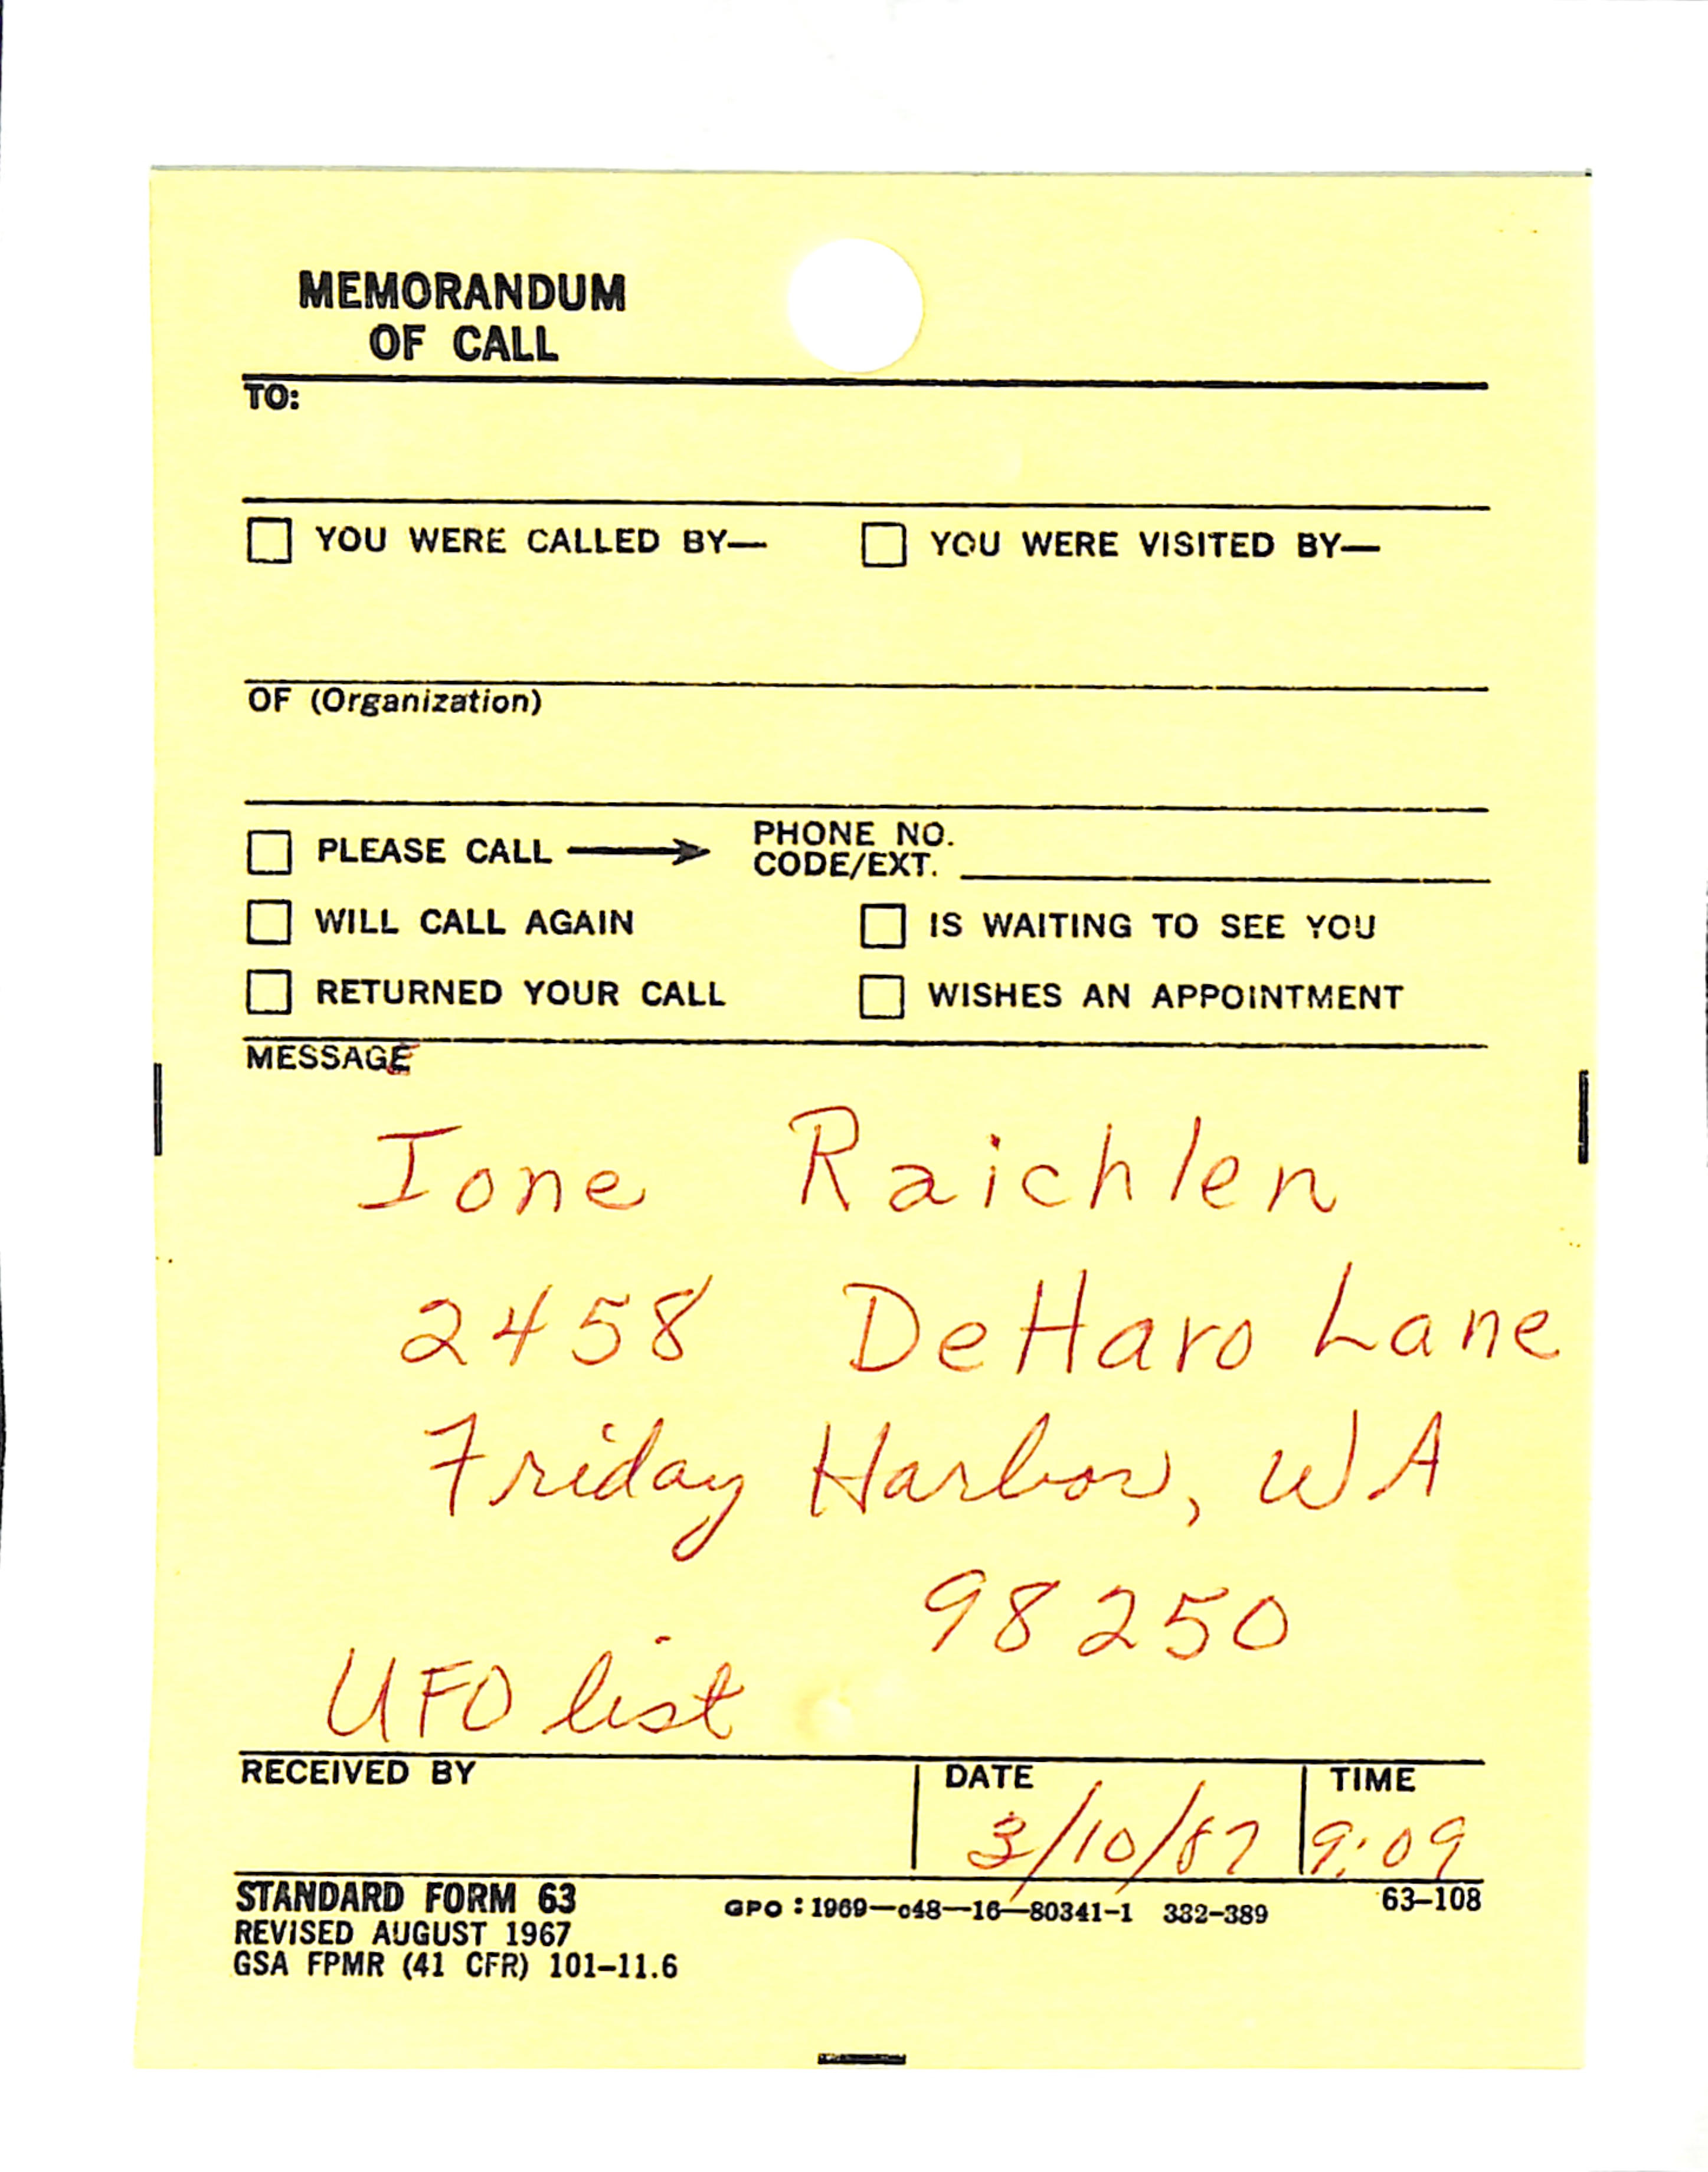 MEMORANDUM
OF CALL
TO:
YOU WERE CALLED BY— YOU WERE VISITED BY—
OF (Organization)
PLEASE CALL → PHONE NO.
CODE/EXT.
WILL CALL AGAIN IS WAITING TO SEE YOU
RETURNED YOUR CALL WISHES AN APPOINTMENT
MESSAGE
Ione Raichlen
2458 DeHaro Lane
Friday Harbor, WA
98250
UFO list
RECEIVED BY DATE TIME
3/10/87 9:09
STANDARD FORM 63 GPO : 1969—c48—16—80341-1 332-389 63-108
REVISED AUGUST 1967
GSA FPMR (41 CFR) 101-11.6